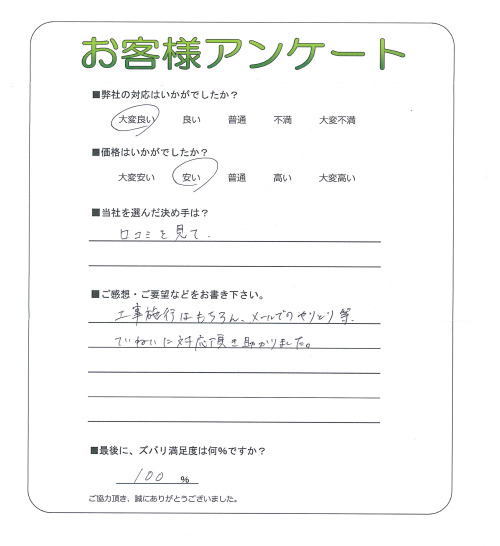 お客様アンケート
■弊社の対応はいかがでしたか？
大変良い 良い 普通 不満 大変不満
■価格はいかがでしたか？
大変安い 安い 普通 高い 大変高い
■当社を選んだ決め手は？
口コミを見て.
■ご感想・ご要望などをお書き下さい。
工事施行はもちろん、メールでのやりとり等、
ていねいに対応頂き助かりました。
■最後に、ズバリ満足度は何%ですか？
100 %
ご協力頂き、誠にありがとうございました。